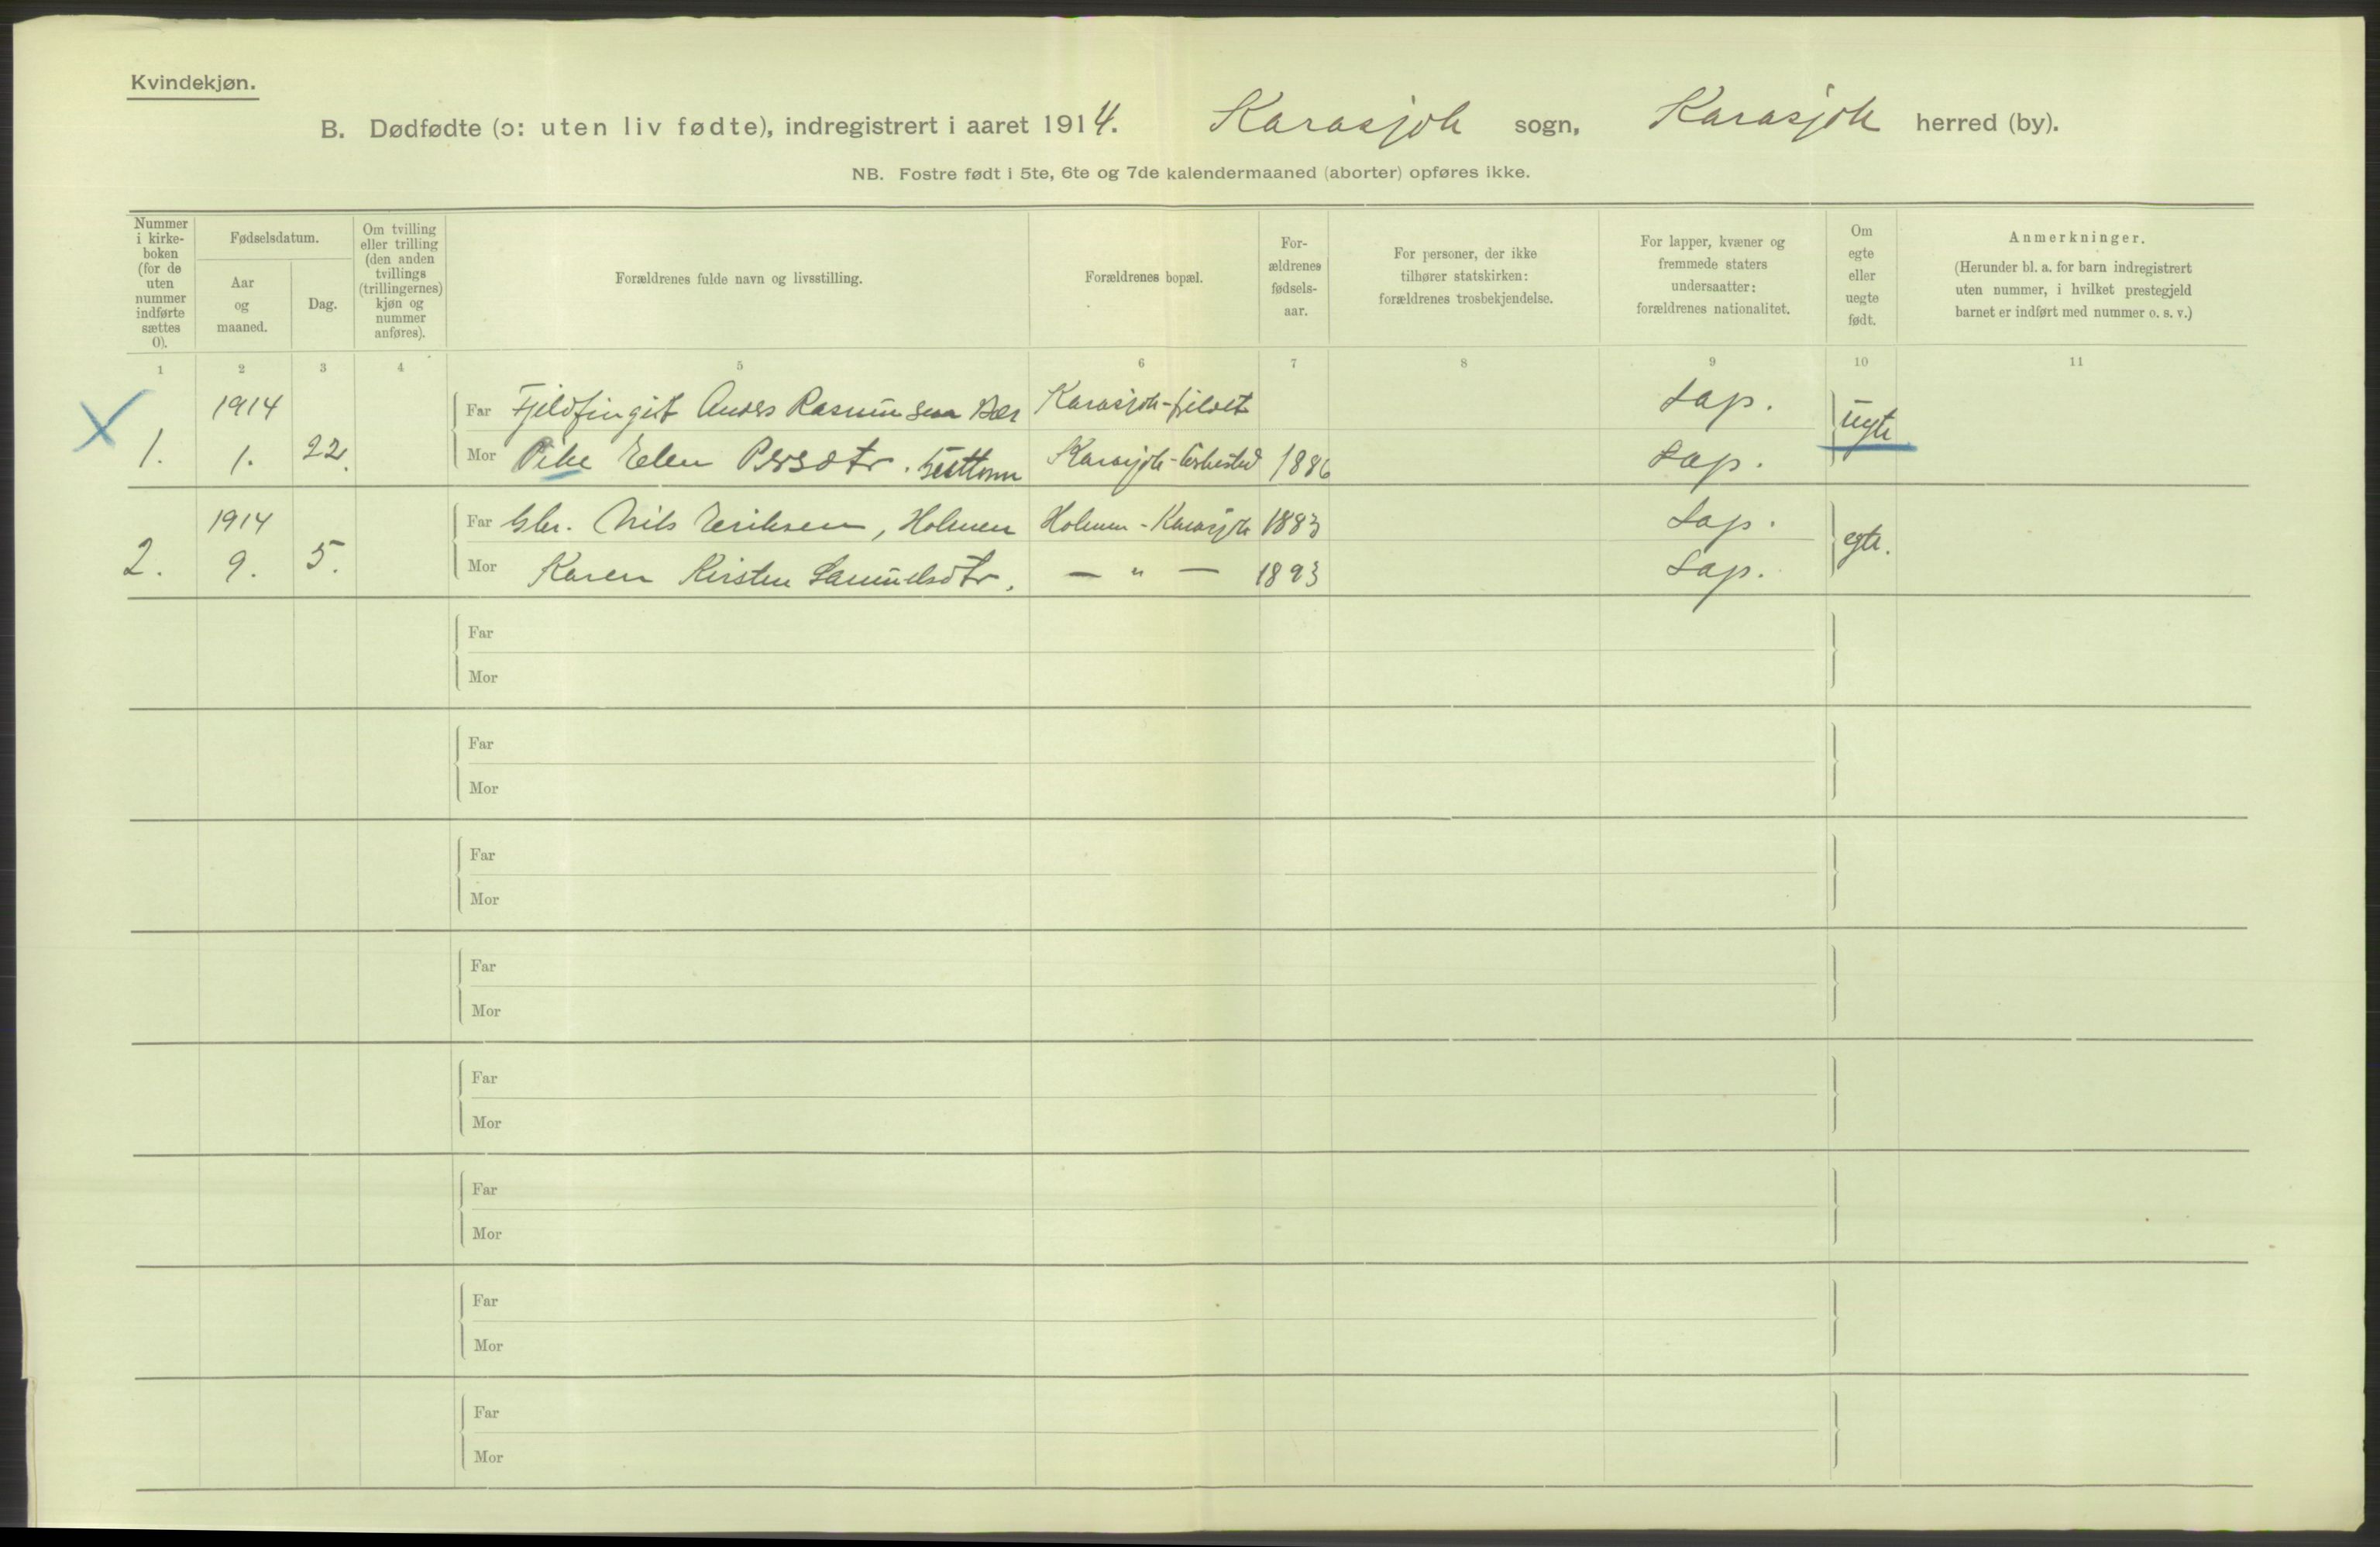 Kvindekjøn.
B. Dødfødte (ɔ: uten liv fødte), indregistrert i aaret 1914. Karasjok sogn, Karasjok herred (by).
NB. Fostre født i 5te, 6te og 7de kalendermaaned (aborter) opføres ikke.
Nummer
i kirke-
boken
(for de
uten
nummer
indførte
sættes
0).
Fødselsdatum.
Aar
og
maaned.
Dag.
Om tvilling
eller trilling
(den anden
tvillings
(trillingernes)
kjøn og
nummer
anføres).
Forældrenes fulde navn og livsstilling.
Forældrenes bopæl.
For-
ældrenes
fødsels-
aar.
For personer, der ikke
tilhører statskirken:
forældrenes trosbekjendelse.
For lapper, kvæner og
fremmede staters
undersaatter:
forældrenes nationalitet.
Om
egte
eller
uegte
født.
Anmerkninger.
(Herunder bl. a. for barn indregistrert
uten nummer, i hvilket prestegjeld
barnet er indført med nummer o. s. v.)
1 2 3 4 5 6 7 8 9 10 11
1914 Far Anders Rasmussen Karasjok-fjeldet Lap.
1. 1. 22. Mor Pike Elen Persdtr. Karasjok-kirkested 1886 Lap. uegte
1914 Far Gbr. Nils Eriksen, Holmen Holmen - Karasjok 1883 Lap.
2. 9. 5. Mor Karen Kirsten Samuelsdtr. — „ — 1893 Lap. egte.
Far
Mor
Far
Mor
Far
Mor
Far
Mor
Far
Mor
Far
Mor
Far
Mor
Far
Mor